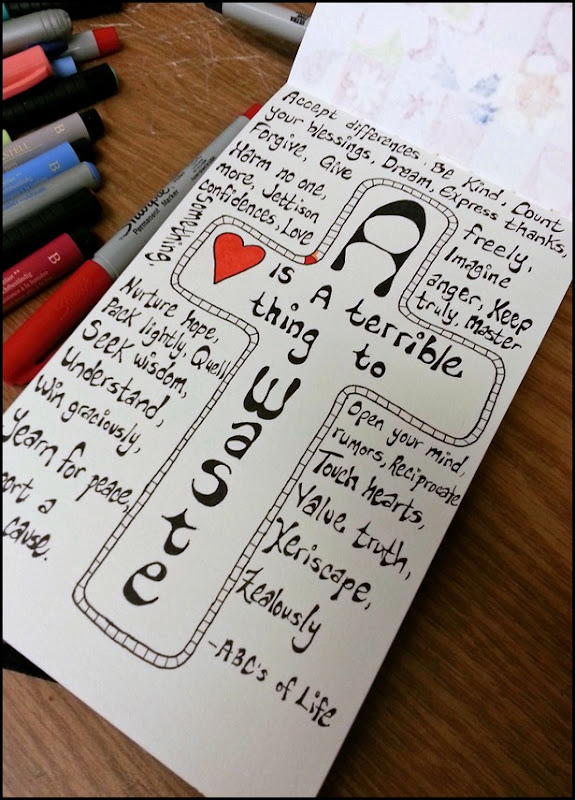 Accept differences, Be Kind, Count
your blessings, Dream, Express thanks,
Forgive, Give freely,
Harm no one, Imagine
more, Jettison anger, Keep
confidences, Love truly, Master
Something,
Nurture hope, Open your mind,
Pack lightly, Quell rumors, Reciprocate
Seek wisdom, Touch hearts,
Understand, Value truth,
Win graciously, Xeriscape,
Yearn for peace, Zealously
port a
cause.
-ABC's of Life
A
is A terrible
thing to
waste
Sharpie
Permanent Marker
B
B
B